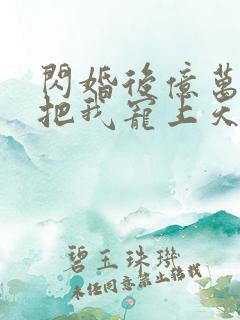 閃婚後億萬
把我寵上天
碧玉珠璣
未經同意禁止轉載